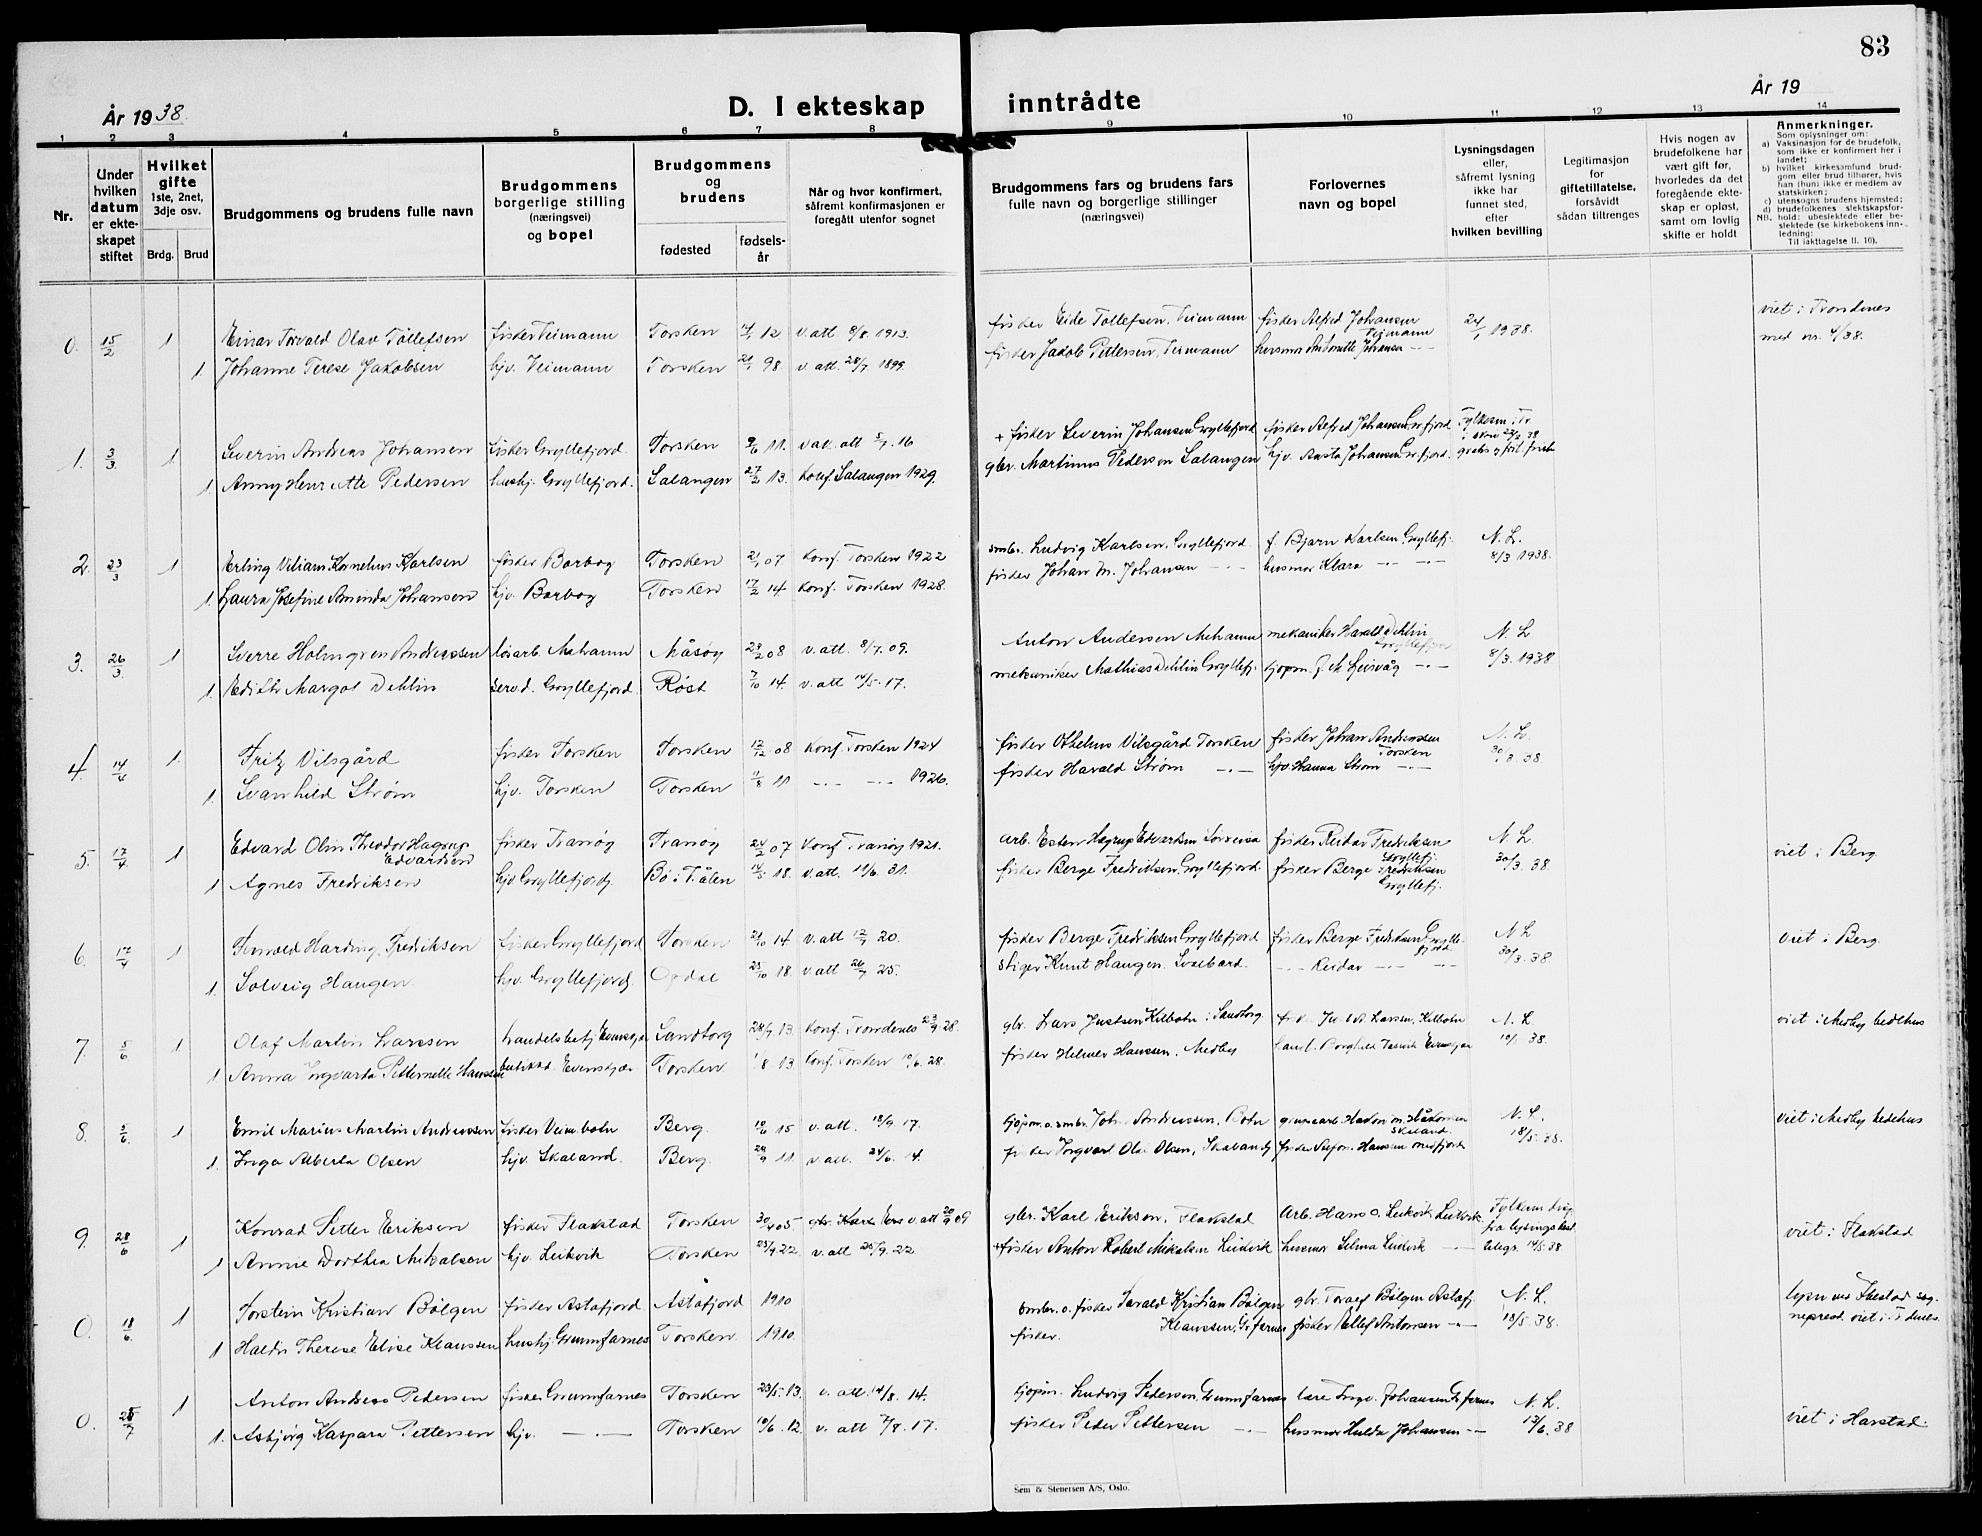 83
År 1938.
D. I ekteskap inntrådte
År 19
1 2 3 4 5 6 7 8 9 10 11 12 13 14
Nr.
Under hvilken datum er ekteskapet stiftet
Hvilket gifte 1ste, 2net, 3dje osv.
Brdg. Brud
Brudgommens og brudens fulle navn
Brudgommens borgerlige stilling (næringsvei) og bopel
Brudgommens og brudens
fødested
fødselsår
Når og hvor konfirmert, såfremt konfirmasjonen er foregått utenfor sognet
Brudgommens fars og brudens fars fulle navn og borgerlige stillinger (næringsvei)
Forlovernes navn og bopel
Lysningsdagen eller, såfremt lysning ikke har funnet sted, efter hvilken bevilling
Legitimasjon for giftetillatelse, forsåvidt sådan tiltrenges
Hvis nogen av brudefolkene har vært gift før, hvorledes da det foregående ekteskap er opløst, samt om lovlig skifte er holdt
Anmerkninger.
Som oplysninger om:
a) Vaksinasjon for de brudefolk, som ikke er konfirmert her i landet;
b) hvilket kirkesamfund brudgom eller brud tilhører, hvis han (hun) ikke er medlem av statskirken;
c) utensogns brudens hjemsted;
d) brudefolkenes slektskapsforhold: ubeslektede eller beslektede (se kirkebokens innledning:
NB. Til iakttagelse II. 10).
0. 15/2 1 Einar Torvald Olav Tollefsen fisker Veimann Torsken 12 v. att 8/8 1913. fisker Eide Tollefsen, Veimann fisker Alfred Johansen Veimann 24/1 1938. viet i Trondenes
1. Johanne Terese Jakobsen hjv. Veimann Torsken 21/1 98 v. att. 28/7 1899. fisker Jakob Pettersen, Veimann husmor Antonette Johansen -- med nr. 4/38.
1. 3/3 1 Severin Andreas Johansen fisker Gryllefjord Torsken 9/6 11. v. att 5/7 16 + fisker Severin Johansen Gryllefjord fisker Alfred Johansen Gr.fjord
1 Anny Henriette Pedersen hushj. Gryllefjord. Salangen 27/2 13. konf. Salangen 1929. gbr. Martinus Pedersen Salangen hjv. Aasta Johansen Gr.fjord.
2. 23/3 1 Erling Viliam Kornelius Karlsen fisker Borbog Torsken 21/1 07 Konf. Torsken 1922 smbr. Ludvig Karlsen, Gryllefjord f. Bjarn Karlsen Gryllefj. N. L.
1. Laura Josefine Aminda Johansen hjv. Borbog Torsken 17/2 14. konf. Torsken 1928. fisker Johan M. Johansen -.- husmor Klara -.- -.- 8/3 1938.
3. 26/3 1 Sverre Holmgren Andreassen Mehamn Måsøy 29/2 08 v. att. 8/7. 09. Anton Andersen Mehamn mekaniker Harald Dehlin Gryllefjord N. L
1. Edith Margot Dehlin serv.d. Gryllefjord Røst 7/10 14. v. att 14/5. 17. mekaniker Mathias Dehlin Gryllefj. kjøpm. Leisvåg -.- 8/3. 1938
4. 14/6 1. Fritz Vilsgård fisker Torsken Torsken 12/12 08 Konf. Torsken 1924 fisker Othelius Vilsgård Torsken fisker Johan Andreassen Torsken N. L.
1. Svanhild Strøm hjv. Torsken Torsken 11/8 11 -.- -.- 1926. fisker Harald Strøm -.- hjv Hanna Strøm -.- 30/3. 38.
5. 17/4 1 Edvard Olin Theodor Hagrup Edvardsen fisker Tranøy Tranøy 24/2 07 Konf Tranøy 1921. arb. Esten Hagrup Edvardsen Sørreisa fisker Reidar Fredriksen Gryllefj. N. L viet i Berg
1 Agnes Fredriksen hjv Gryllefjord. Bø i V.ålen 14/5 18. v. att. 11/6. 31. fisker Berge Fredriksen Gryllefjord. fisker Berge Fredriksen Gryllefj. 30/3. 38.
6. 17/4 1 Harding Fredriksen fisker Gryllefjord Torsken 21/10 14 v. att 12/7 20. fisker Berge Fredriksen Gryllefjord fisker Berge Fredriksen Gryllefjord N L viet i Berg.
1. Solveig Haugen hjv. Gryllefjord. Opdal 25/10 18. v. att 26/7 25. stiger Knut Haugen. Svalbard. -.- Reidar -.- -.- 30/3. 38
7. 5/6 1 Olaf Martin Larssen handelsbetj Evenskjær Sandtorg 28/9 13. Konf. Trondenes 23/9 28. gbr. Lars Justsen Kilbotn i Sandtorg Larssen, Kilbotn N. L viet i Medby bedehus
1 Anna Ingvarda Petternelle Hansen Evenskjær Torsken 1/8 13 Konf. Torsken 10/6. 28. fisker Helmer Hanssen. Medby Borghild Evenskjær 10/1 38.
8. 5/6. 1 Emil Marius Martin Andreassen fisker Veimbotn Berg. 19/6 15 v. att. 18/9 17. kjøpm. o. smbr. Joh. Andreassen, Botn Håkonsen Skaland N. L. viet i Medby bedehus
1. Inga Alberta Olsen hjv. Skaland. Berg. 29/9 11. v. att. 24/6. 4. fisker Ingvart Olsen, Skaland fisker Hanssen Mefjord 18/5. 38.
9. 28/6 1 Konrad Petter Eriksen fisker Flakstad Torsken 30/4 05 v. att 20/9 09 gbr. Karl Eriksen, Flakstad Arb. Hans O. Leikvik Leikvik viet i Flakstad
1 Annie Dorthea Mikalsen hjv. Leikvik Torsken 25/4 22. v. att 20/9. 22. + fisker Anton Robert Mikalsen Leikvik husmor Selma Leikvik -- telegr. 14/5. 38
0. 18/6. 1 Torstein Kristian Bolgen fisker Astafjord Astafjord 1910 smbr. o. fisker Harald Kristian Bolgen gbr. Toralf Bolgen Astafj. N. L.
1 Haldis Therese Elise Klaussen hushj Grunnfarnes Torsken. 1910. fisker. Klaussen, Gr.farnes fisker Ellef Antonsen -- 18/5. 38.
0. 28/7 1 Anton Andreas Pedersen fisker Grunnfarnes Torsken 23/5. 13. v. att. 14/8. 14. kjøpm. Ludvig Pedersen Grunnfarnes Johansen Gr.farnes N. L.
1. Asbjørg Kaspara Pettersen hjv. -.- Torsken 10/6. 12. v. att 7/8. 17. fisker Peder Pettersen -.- husmor Hulda Johansen -- 13/6. 38 viet i Harstad.
Sem & Stenersen A/S, Oslo.